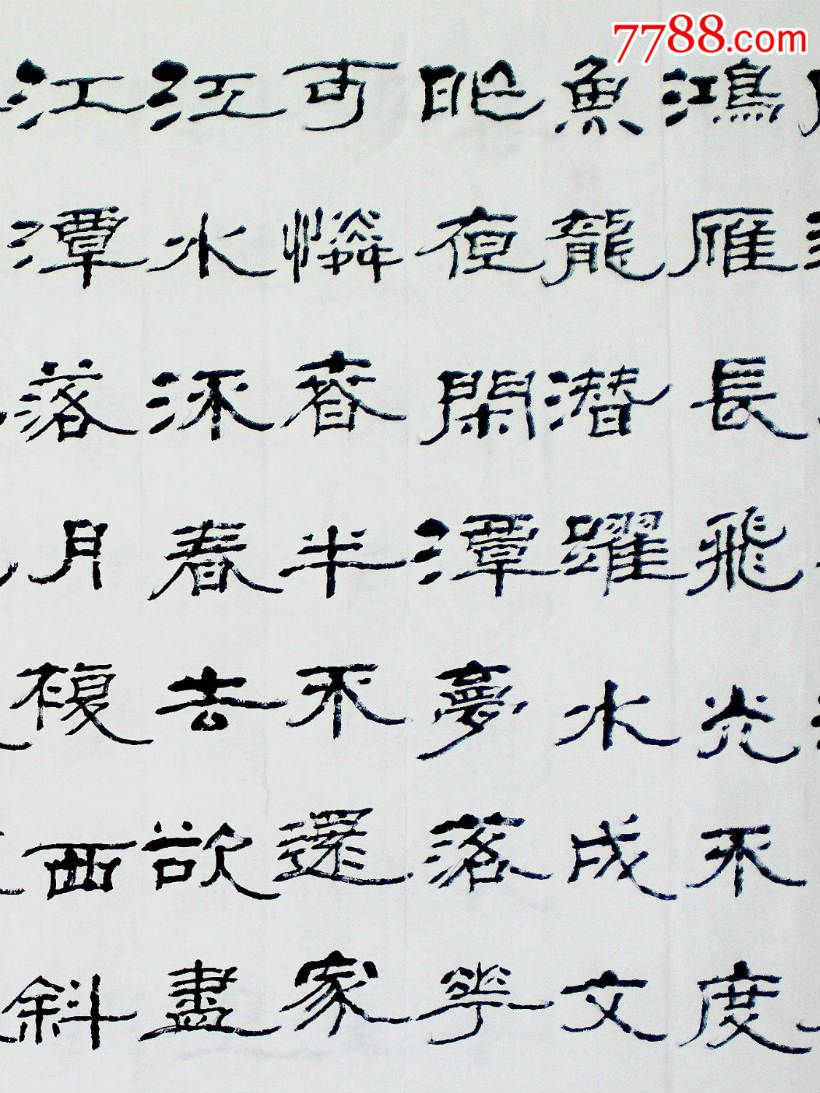 7788.com
鴻雁長飛光不度
魚龍潛躍水成文
昨夜閑潭夢落花
可憐春半不還家
江水流春去欲盡
江潭落月複西斜